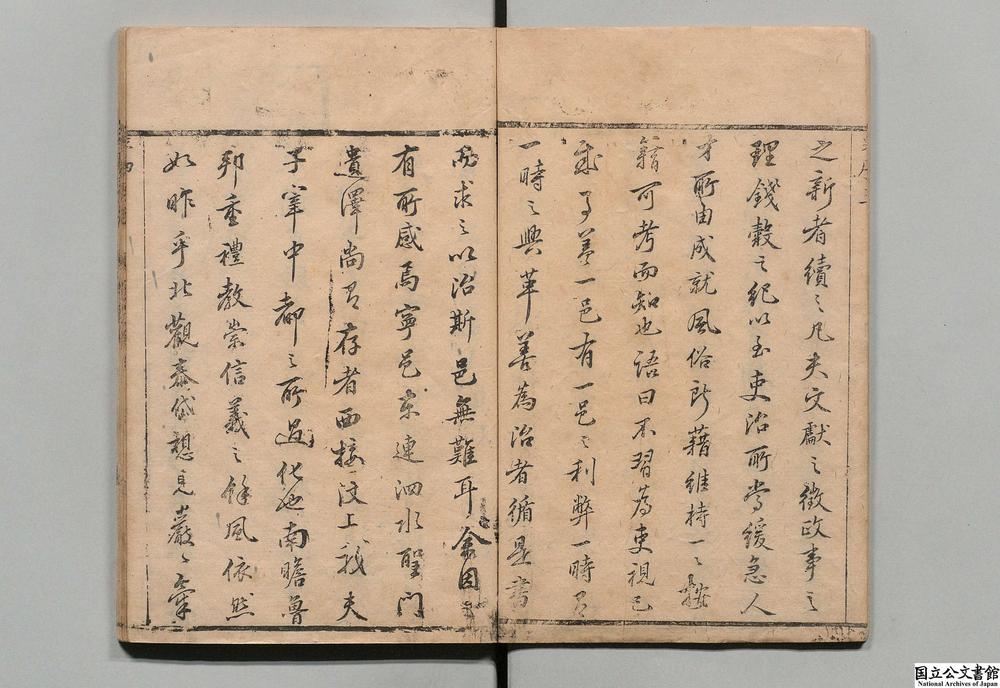 之新者續之凡夫文獻之徵政事之
理錢穀之紀以至吏治所當緩急人
才所由成就風俗所藉維持一一按
籍可考而知也語曰不習為吏視已
成事蓋一邑有一邑之利弊一時有
一時之興革善為治者循是書
而求之以治斯邑無難耳余因
有所感焉寧邑東連泗水聖門
遺澤尚有存者西接汶上我夫
子宰中都之所過化也南瞻魯
邦重禮教崇信義之餘風依然
如昨乎北觀泰岱想見巖巖氣
国立公文書館
National Archives of Japan